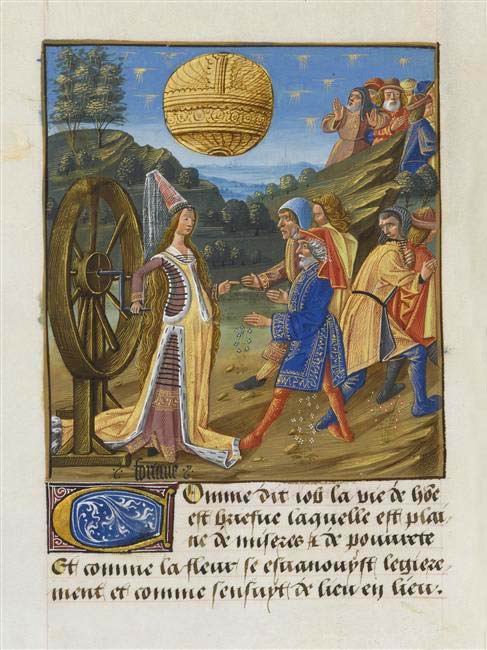 fortune
Comme dit iob la vie de hōe
est briefue laquelle est plai
ne de miseres ⁊ de pouurete
Et comme la fleur se esuanouyst legiere.
ment et comme sensuyt de lieu en lieu.